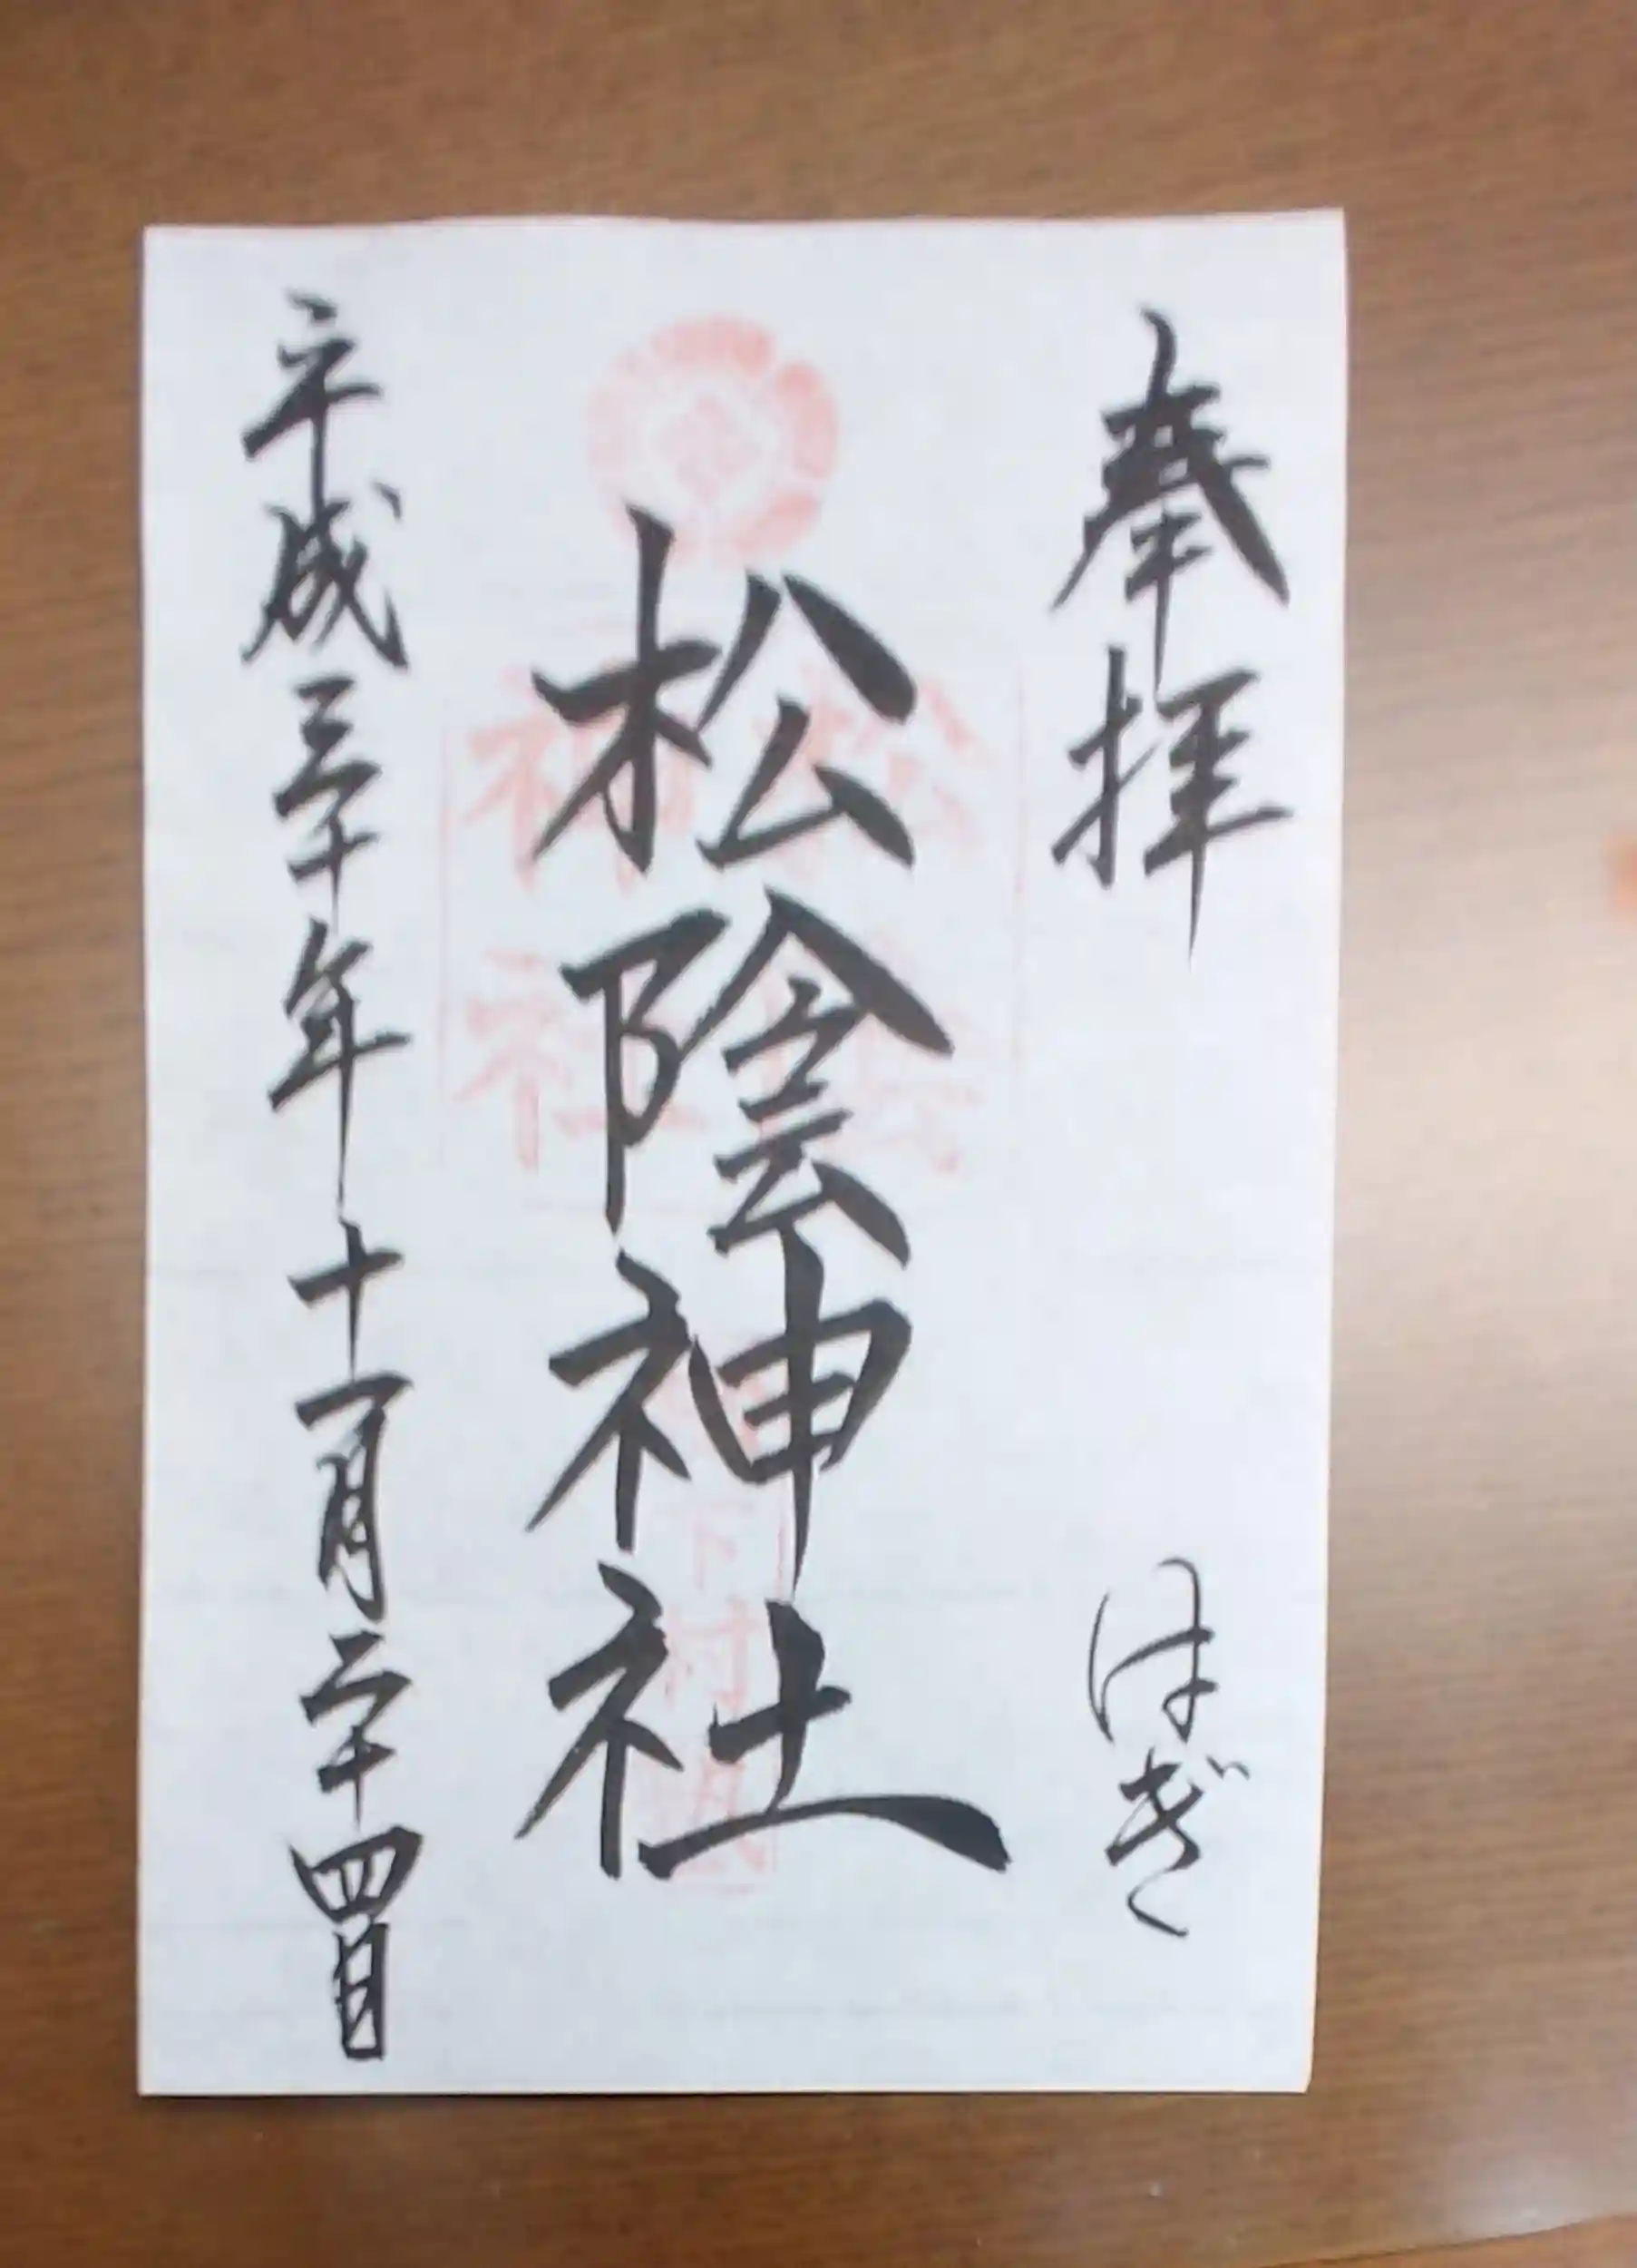 奉拝　はぎ
松陰神社
平成三十年十一月二十四日
松陰神社